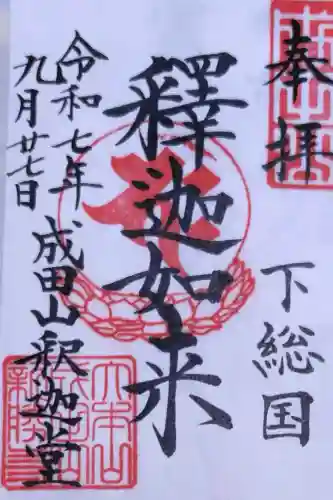 奉拝
下総国
釋迦如来
令和七年
九月廿七日
成田山釈迦堂